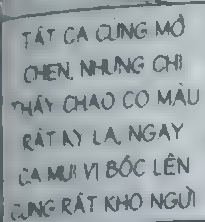 TẤT CA CŨNG MỞ
CHEN, NHƯNG CHI
THẤY CHAO CO MÀU
RẤT KỲ LA, NGAY
CA MUI VI BỐC LÊN
CŨNG RẤT KHO NGƯI